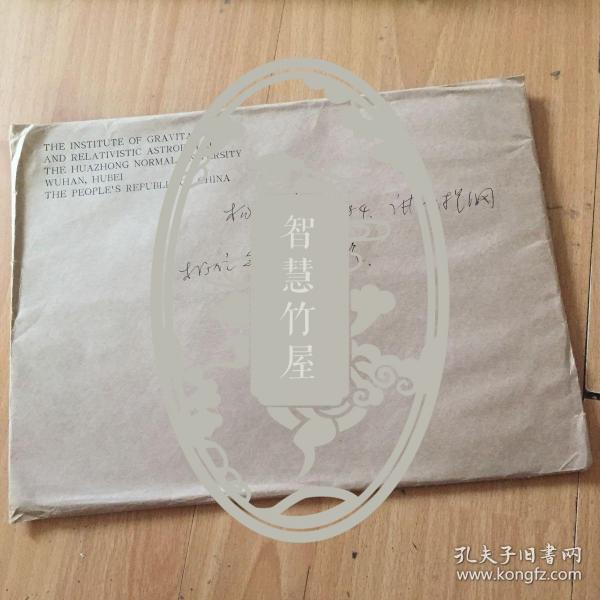 THE INSTITUTE OF GRAVITA
AND RELATIVISTIC ASTROPH
THE HUAZHONG NORMAL UNIVERSITY
WUHAN, HUBEI
THE PEOPLE'S REPUBLIC OF CHINA
84. 讲 提纲
智慧竹屋
孔夫子旧书网
www.kongfz.com